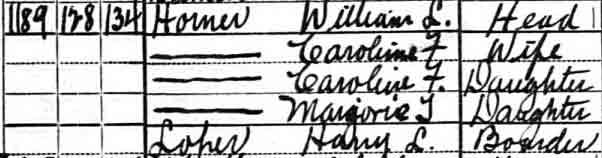 1189 128 134 Horner William L. Head
—— Caroline F Wife
—— Caroline F. Daughter
—— Marjorie T Daughter
Loper Harry L. Boarder